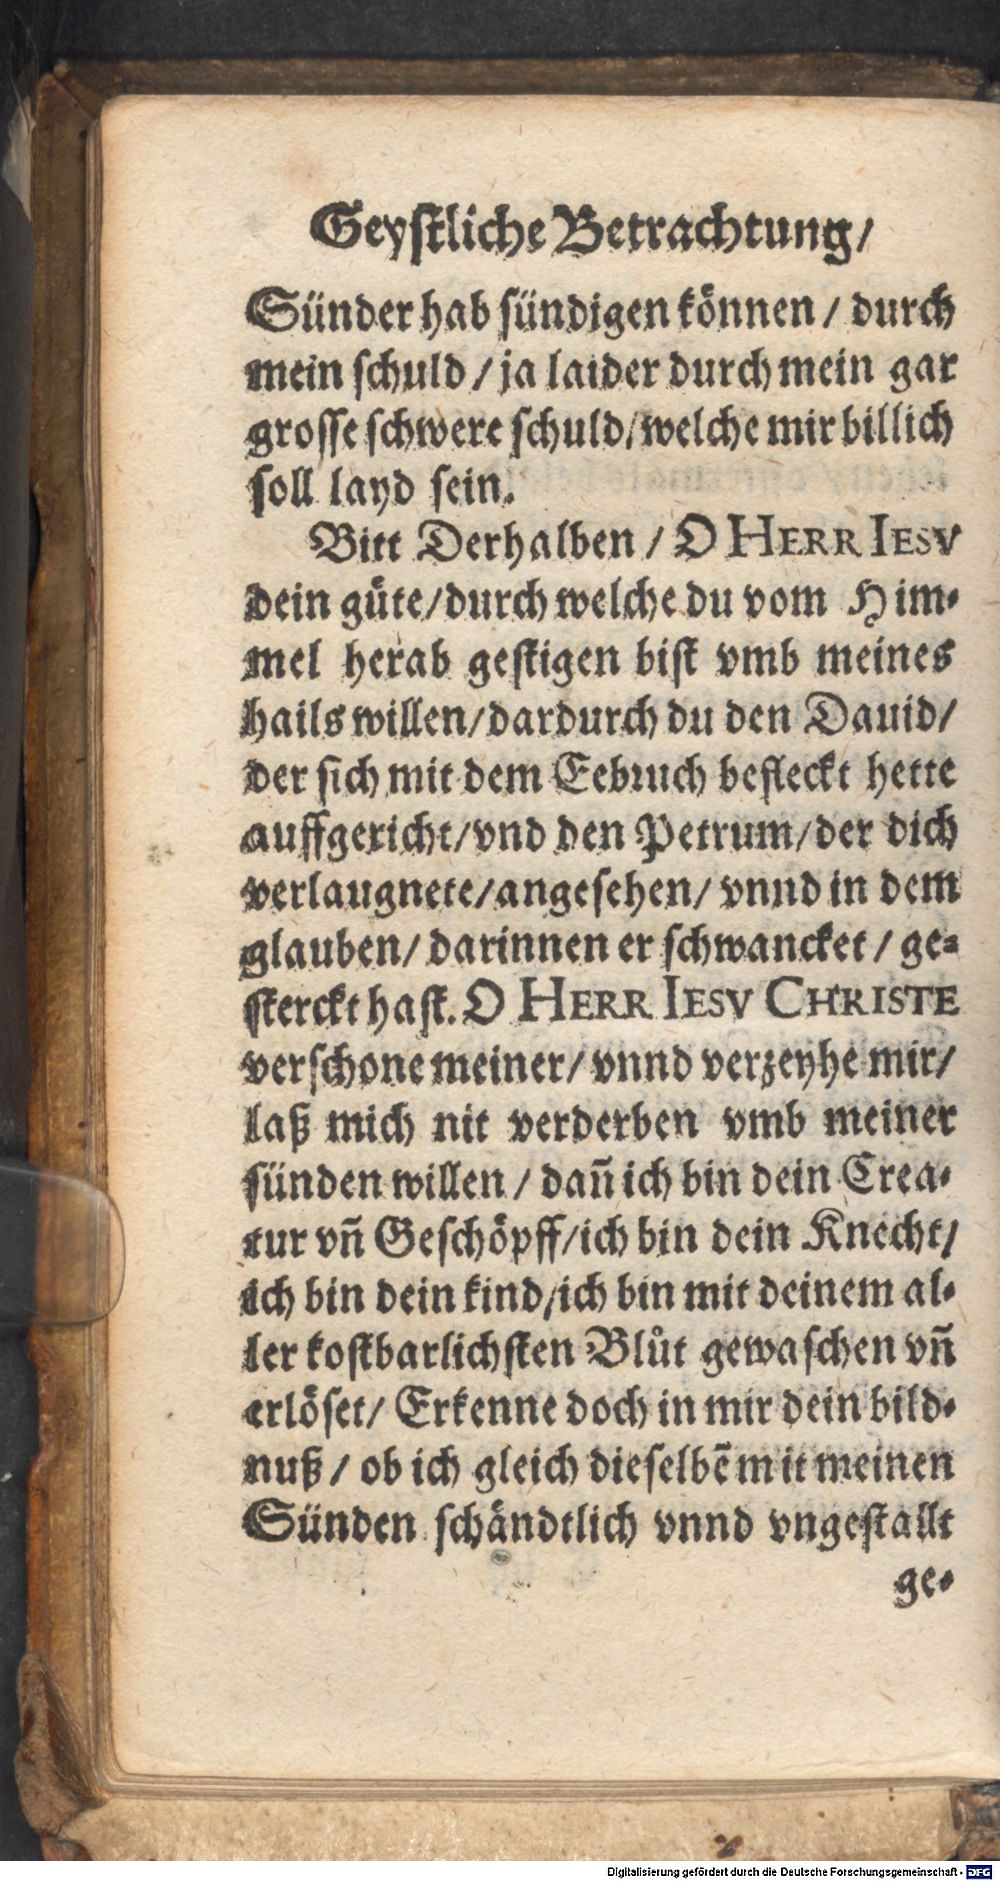 Geystliche Betrachtung/
Sünder hab sündigen können / durch
mein schuld / ja laider durch mein gar
grosse schwere schuld/welche mir billich
soll layd sein.
Bitt Derhalben / O HERR IESV
dein guͤte/durch welche du vom Him-
mel herab gestigen bist vmb meines
hails willen/dardurch du den Dauid/
der sich mit dem Eebruch befleckt hette
auffgericht/vnd den Petrum/der dich
verlaugnete/angesehen/ vnnd in dem
glauben/ darinnen er schwancket / ge-
sterckt hast. O HERR IESV CHRISTE
verschone meiner/ vnnd verzeyhe mir/
laß mich nit verderben vmb meiner
sünden willen / dañ ich bin dein Crea-
tur vñ Geschöpff/ich bin dein Knecht/
ich bin dein kind/ich bin mit deinem al-
ler kostbarlichsten Blůt gewaschen vñ
erlöset/ Erkenne doch in mir dein bild-
nuß / ob ich gleich dieselbẽ mit meinen
Sünden schändtlich vnnd vngestallt
ge-
Digitalisierung gefördert durch die Deutsche Forschungsgemeinschaft - DFG